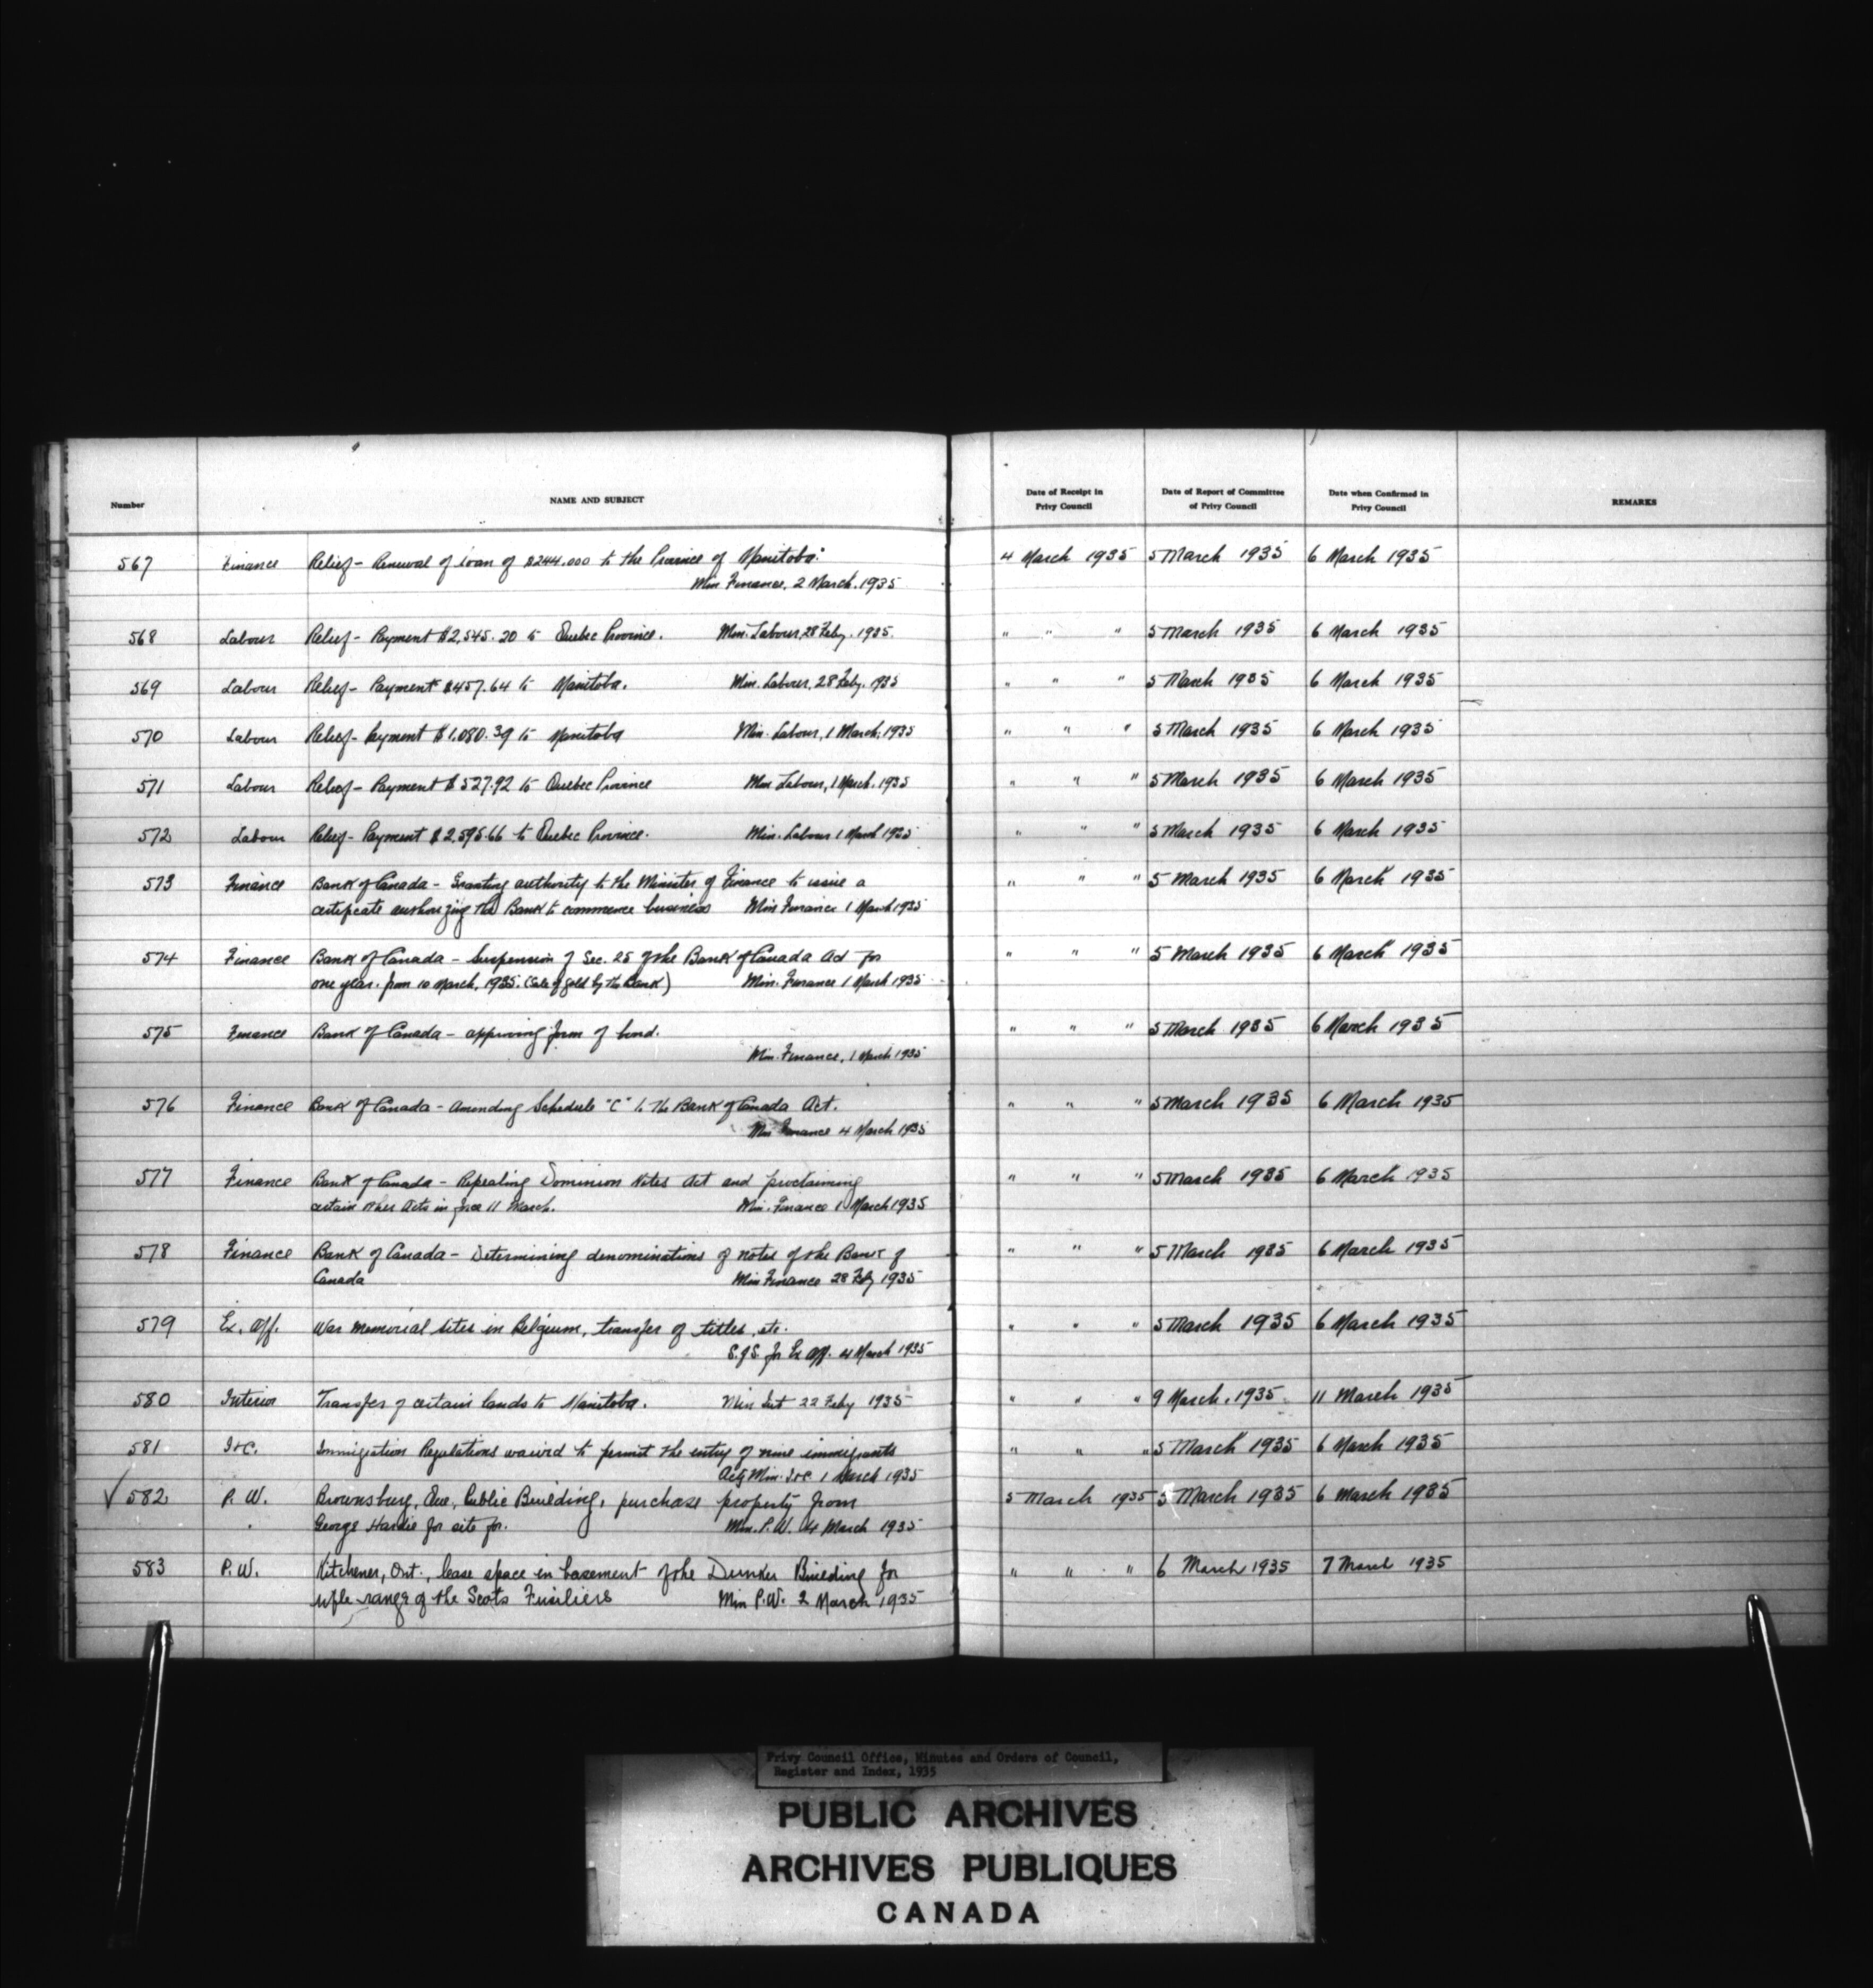 Number NAME AND SUBJECT Date of Receipt in Privy Council Date of Report of Committee of Privy Council Date when Confirmed in Privy Council REMARKS
567 Finance Relief - Renewal of loan of $244,000 to the Province of Manitoba. 4 March 1935 5 March 1935 6 March 1935
Min. Finance, 2 March, 1935
568 Labour Relief - Payment $2,545.20 to Quebec Province. Min. Labour, 28 Feby. 1935. " " " 5 March 1935 6 March 1935
569 Labour Relief - Payment $457.64 to Manitoba. Min. Labour, 28 Feby. 1935 " " " 5 March 1935 6 March 1935
570 Labour Relief - Payment $1,080.39 to Manitoba Min. Labour, 1 March, 1935 " " " 5 March 1935 6 March 1935
571 Labour Relief - Payment $527.92 to Quebec Province Min. Labour, 1 March, 1935 " " " 5 March 1935 6 March 1935
572 Labour Relief - Payment $2,595.66 to Quebec Province. Min. Labour 1 March 1935 " " " 5 March 1935 6 March 1935
573 Finance Bank of Canada - Granting authority to the Minister of Finance to issue a " " " 5 March 1935 6 March 1935
certificate authorizing the Bank to commence business Min Finance 1 March 1935
574 Finance Bank of Canada - Suspension of Sec. 25 of the Bank of Canada Act for " " " 5 March 1935 6 March 1935
one year. from 10 March, 1935. (Sale of gold by the Bank) Min. Finance 1 March 1935
575 Finance Bank of Canada - approving form of bond. " " " 5 March 1935 6 March 1935
Min. Finance, 1 March 1935
576 Finance Bank of Canada - Amending Schedule "C" to the Bank of Canada Act. " " " 5 March 1935 6 March 1935
Min Finance 4 March 1935
577 Finance Bank of Canada - Repealing Dominion Notes Act and proclaiming " " " 5 March 1935 6 March 1935
certain other Acts in force 11 March. Min. Finance 1 March 1935
578 Finance Bank of Canada - Determining denominations of notes of the Bank of " " " 5 March 1935 6 March 1935
Canada Min Finance 28 Feby 1935
579 Ex. Aff. War memorial sites in Belgium, transfer of titles, etc. " " " 5 March 1935 6 March 1935
S.of S. for Ex Aff. 4 March 1935
580 Interior Transfer of certain lands to Manitoba. Min Int 22 Feby 1935 " " " 9 March, 1935 11 March 1935
581 I+C. Immigration Regulations waived to permit the entry of nine immigrants " " " 5 March 1935 6 March 1935
Actg Min. I+C 1 March 1935
✓ 582 P. W. Brownsburg, Que, Public Building, purchase property from 5 March 1935 5 March 1935 6 March 1935
George Hardie for site for. Min. P.W. 4 March 1935
583 P.W. Kitchener, Ont., lease space in basement of the Dunker Building for " " " 6 March 1935 7 March 1935
rifle range of the Scots Fusiliers Min P.W. 2 March 1935
Privy Council Office, Minutes and Orders of Council,
Register and Index, 1935
PUBLIC ARCHIVES
ARCHIVES PUBLIQUES
CANADA